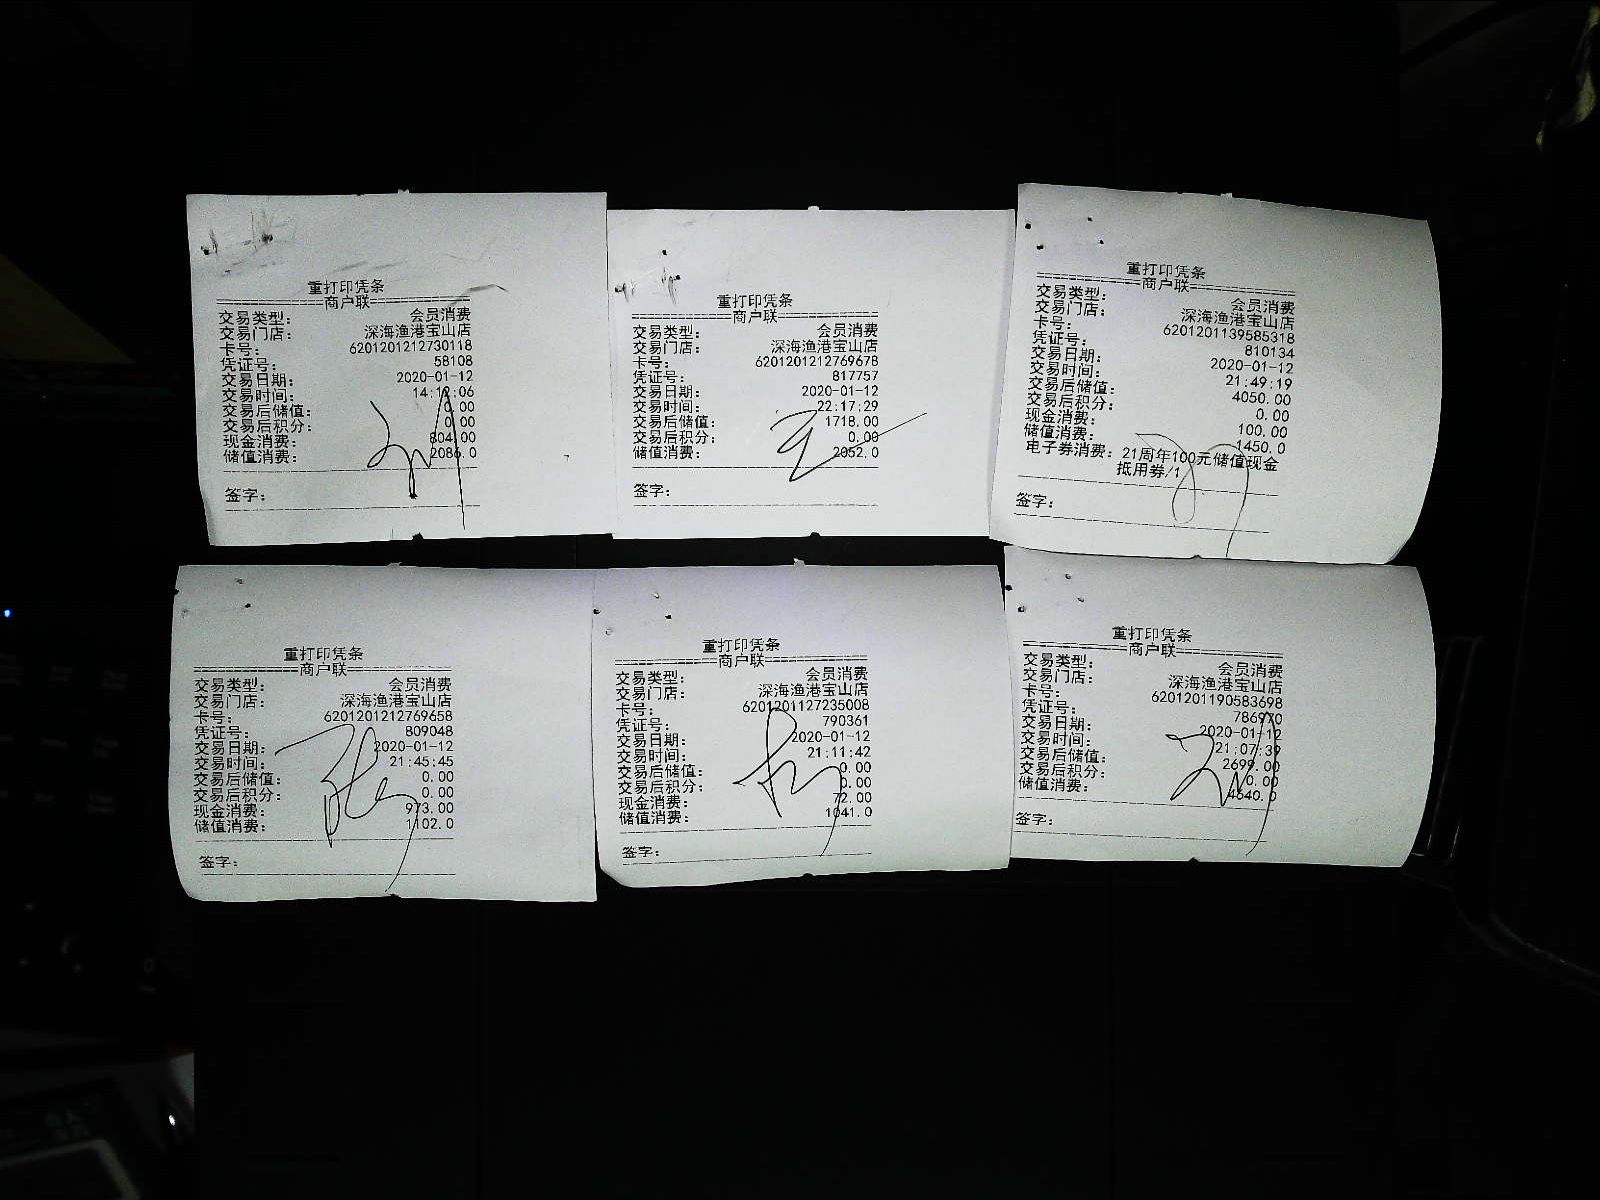 重打印凭条
==========商户联==========
交易类型: 会员消费
交易门店: 深海渔港宝山店
卡号: 6201201212730118
凭证号: 58108
交易日期: 2020-01-12
交易时间: 14:12:06
交易后储值: 0.00
交易后积分: 0.00
现金消费: 804.00
储值消费: 2086.0
签字:
重打印凭条
==========商户联==========
交易类型: 会员消费
交易门店: 深海渔港宝山店
卡号: 6201201212769678
凭证号: 817757
交易日期: 2020-01-12
交易时间: 22:17:29
交易后储值: 1718.00
交易后积分: 0.00
储值消费: 2052.0
签字:
重打印凭条
==========商户联==========
交易类型: 会员消费
交易门店: 深海渔港宝山店
卡号: 6201201139585318
凭证号: 810134
交易日期: 2020-01-12
交易时间: 21:49:19
交易后储值: 4050.00
交易后积分: 0.00
现金消费: 100.00
储值消费: 1450.0
电子券消费: 21周年100元储值现金
抵用券/1
签字:
重打印凭条
==========商户联==========
交易类型: 会员消费
交易门店: 深海渔港宝山店
卡号: 6201201212769658
凭证号: 809048
交易日期: 2020-01-12
交易时间: 21:45:45
交易后储值: 0.00
交易后积分: 0.00
现金消费: 973.00
储值消费: 1102.0
签字:
重打印凭条
==========商户联==========
交易类型: 会员消费
交易门店: 深海渔港宝山店
卡号: 6201201127235008
凭证号: 790361
交易日期: 2020-01-12
交易时间: 21:11:42
交易后储值: 0.00
交易后积分: 0.00
现金消费: 72.00
储值消费: 1041.0
签字:
重打印凭条
==========商户联==========
交易类型: 会员消费
交易门店: 深海渔港宝山店
卡号: 6201201190583698
凭证号: 786970
交易日期: 2020-01-12
交易时间: 21:07:39
交易后储值: 2699.00
交易后积分: 0.00
储值消费: 4640.0
签字: